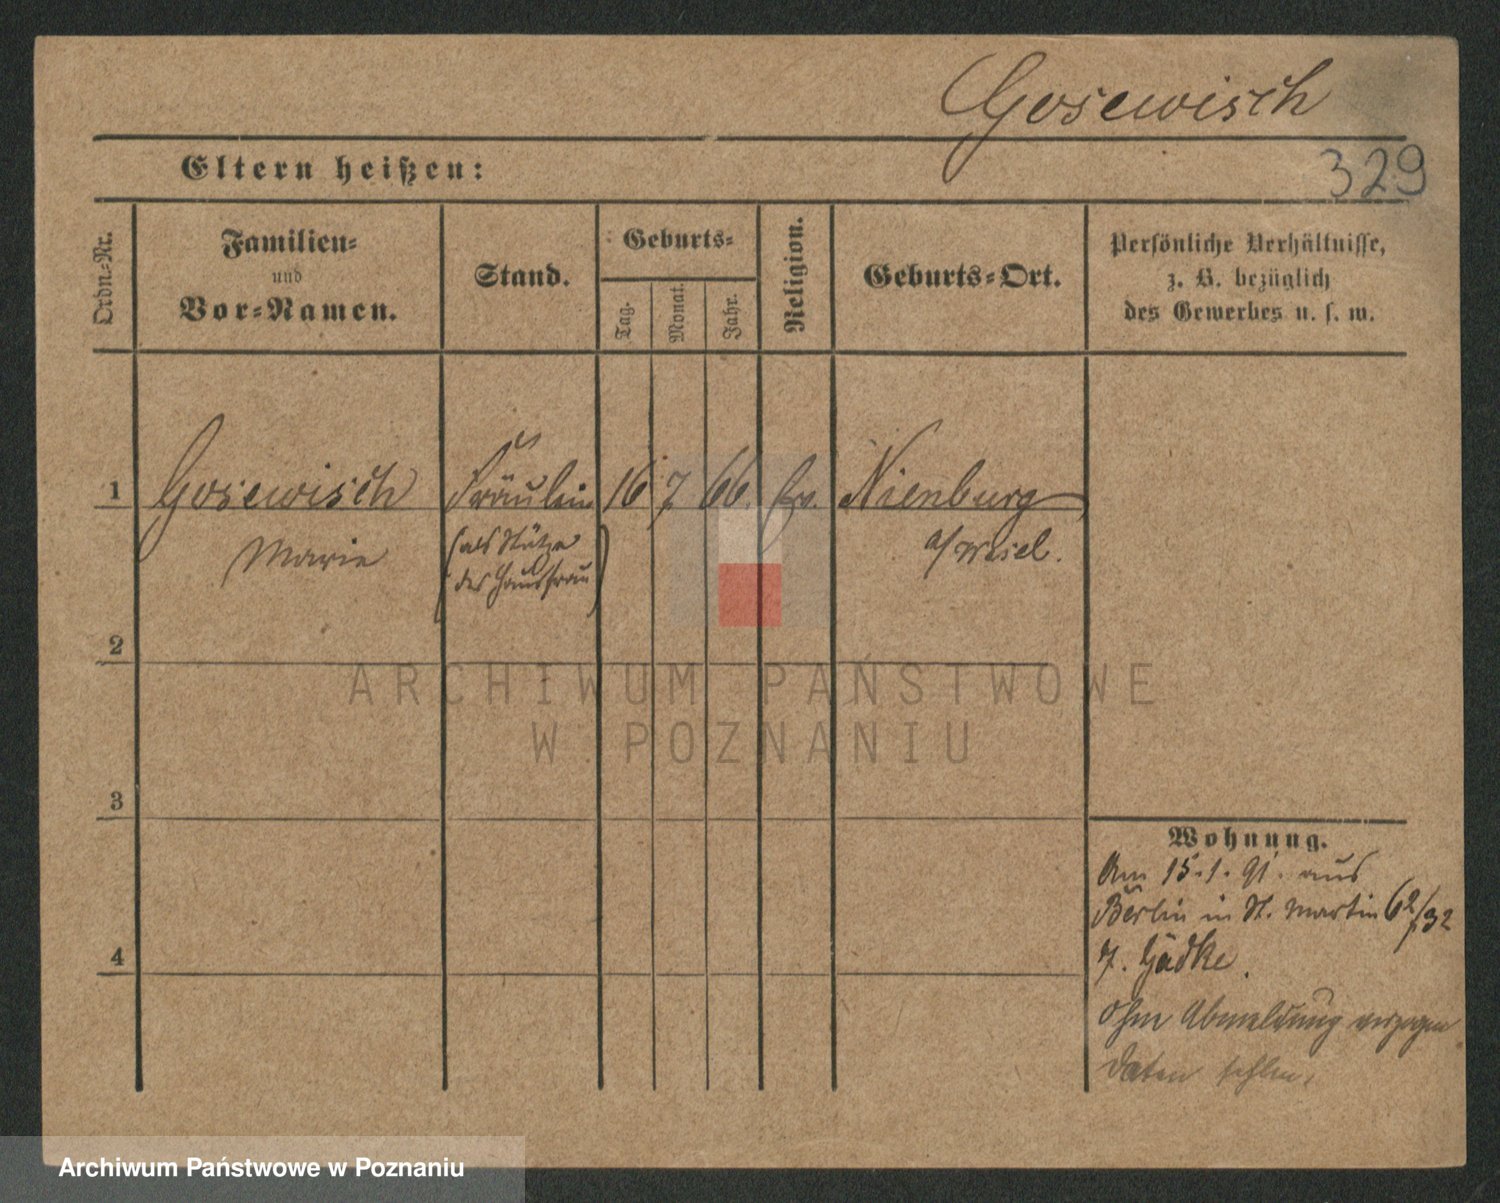 Gosewisch
329
Eltern heißen:
Ordn.-Nr.
Familien-
und
Vor-Namen.
Stand.
Geburts-
Tag.
Monat.
Jahr.
Religion.
Geburts-Ort.
Persönliche Verhältnisse,
z. B. bezüglich
des Gewerbes u. s. w.
1 Gosewisch Fräulein 16 7 66. Ev. Nienburg
Marie (als Stütze a/Wesel.
der Hausfrau)
2
ARCHIWUM PAŃSTWOWE
W POZNANIU
3
4
Wohnung.
Am 15.1.91. aus
Berlin in St. Martin 62/32
Gädke.
Ohne Abmeldung verzogen
Daten fehlen.
Archiwum Państwowe w Poznaniu